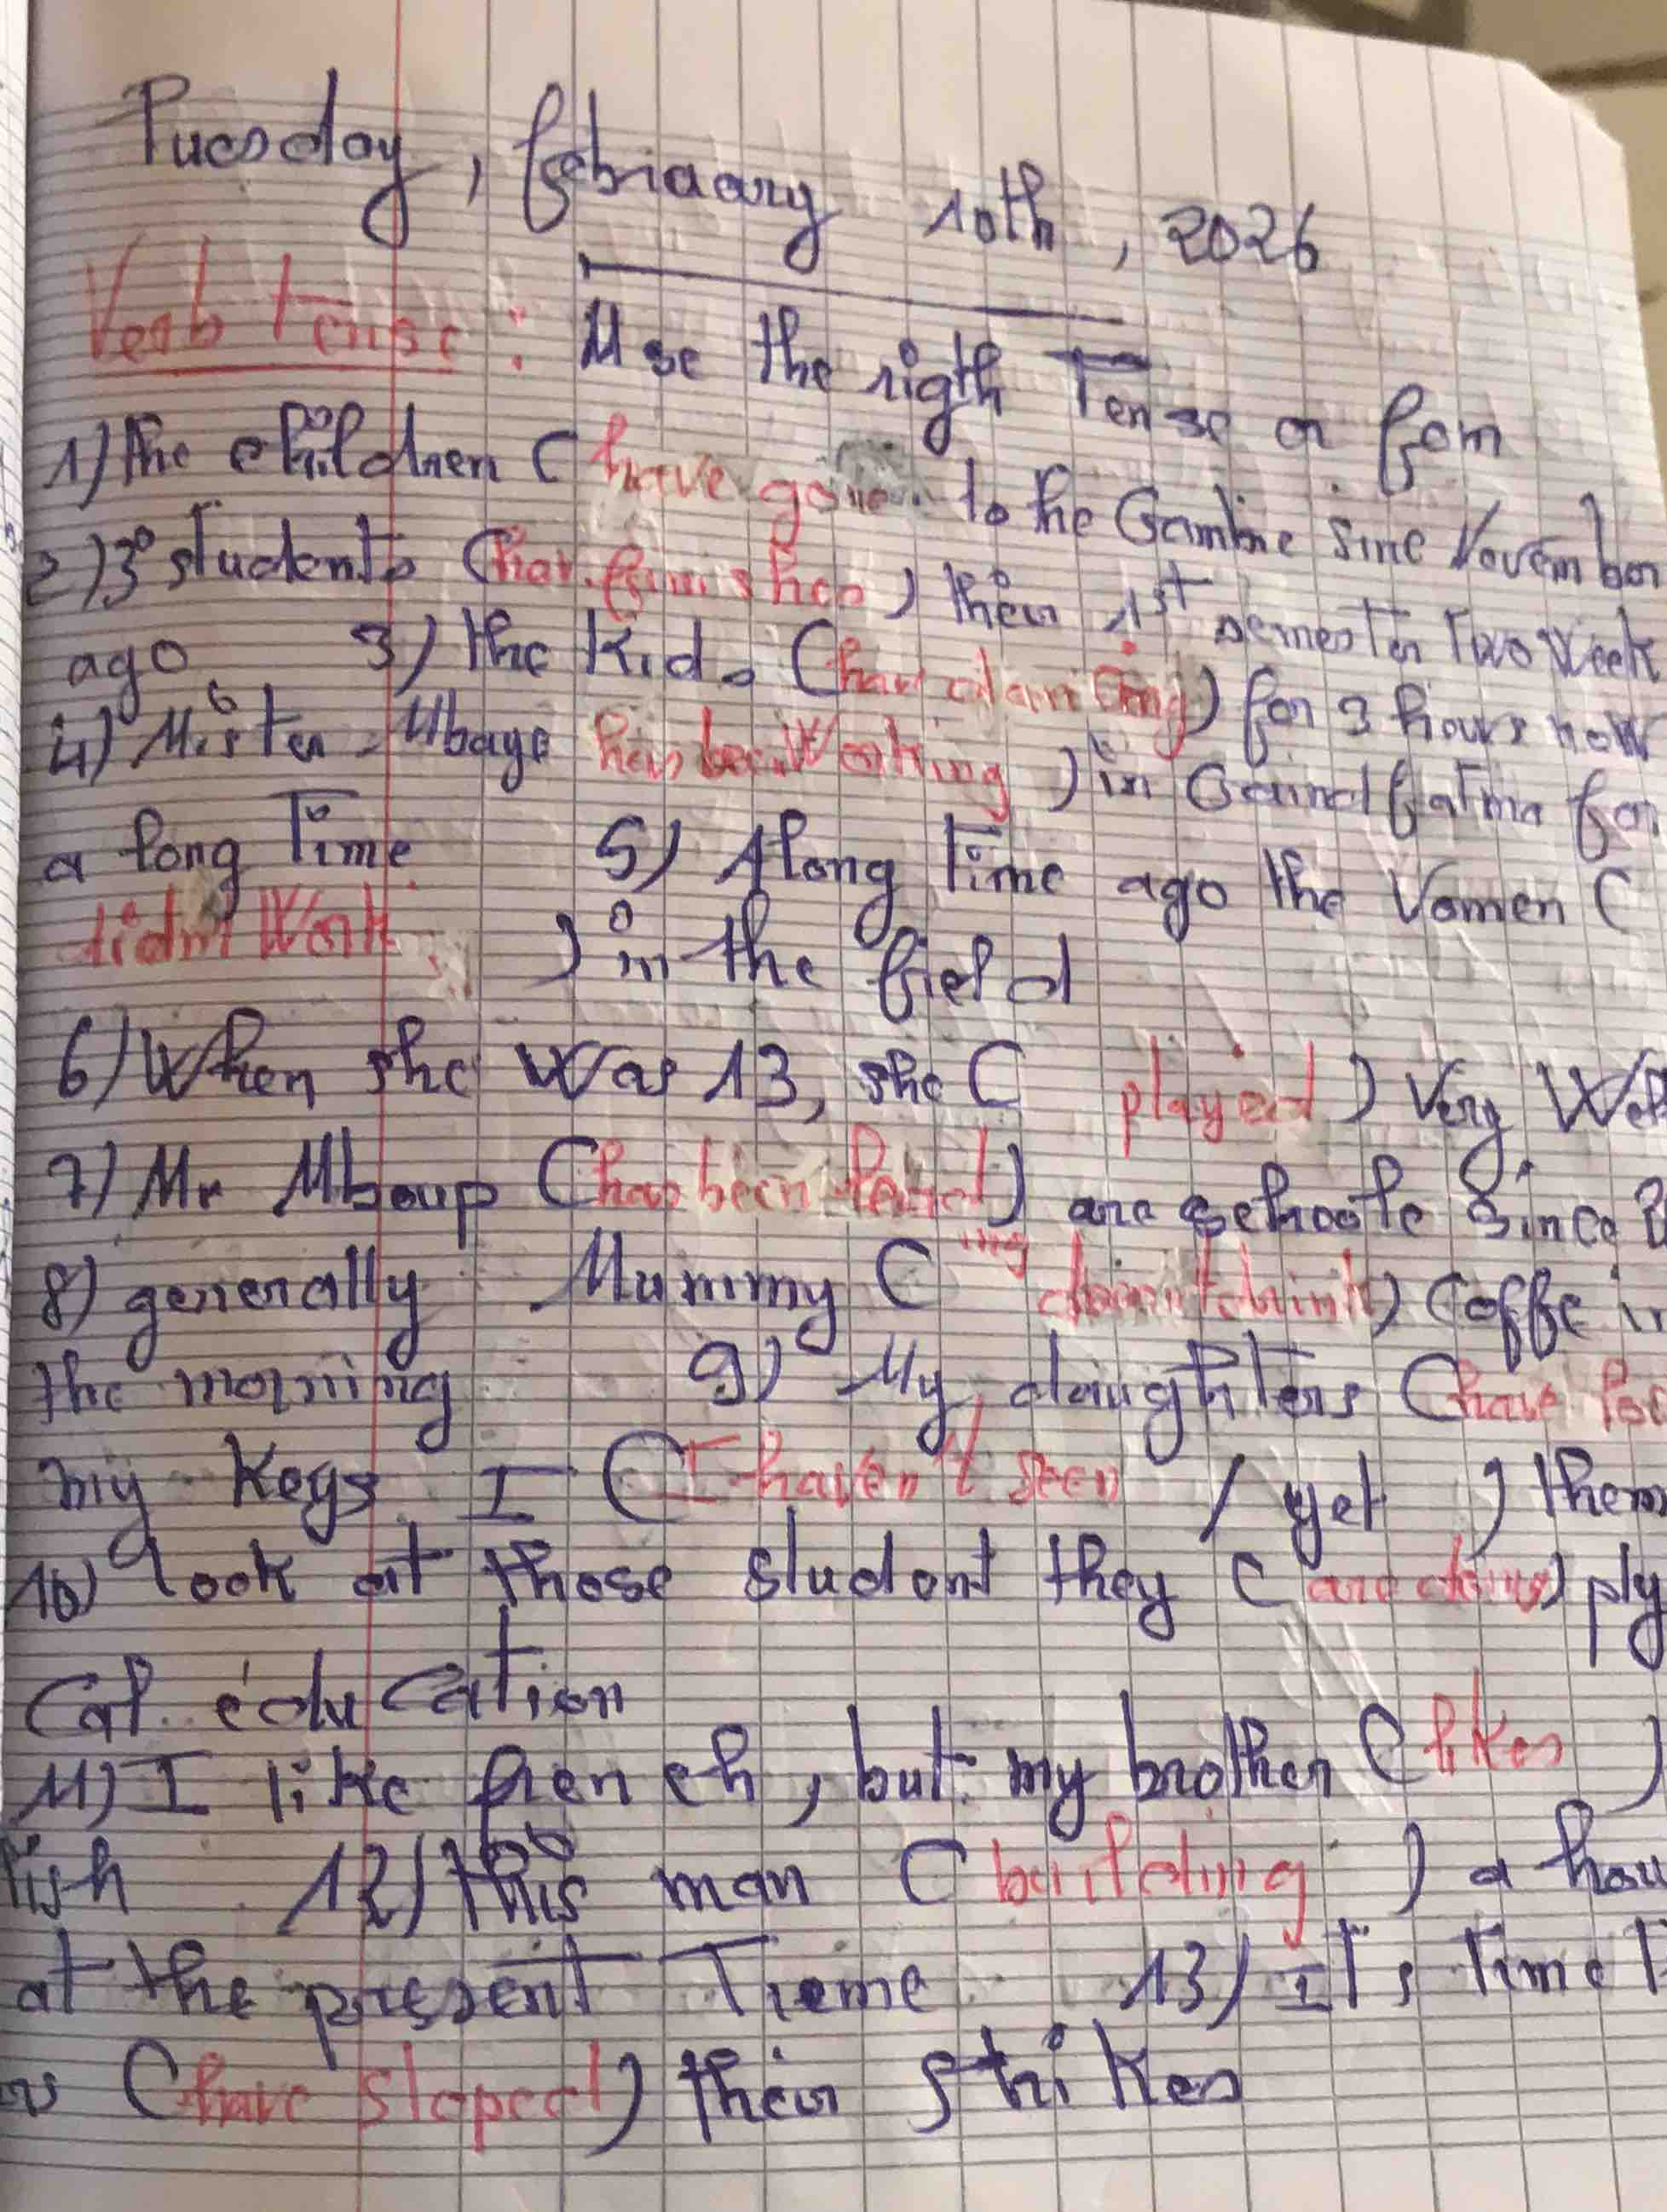 Tuesday, febriaary 10th, 2026
Verb Tense: Use the rigth Tense or fom
1) the children (have gone to the Gambie Sinc Novemben
2) 3e students ( ) their 1st semester Two Week
ago 3) the Kids (have ) for 3 hours now
4) Mister Mbaye has been Working ) in Gaindé fatma for
a long Time 5) A long Time ago the Women (
Work ) in the field
6) When she was 13, she ( played ) Very Well
7) Mr Mboup (has been ) are schoole Since 2
8) generally Mummy ( drink) Coffe in
ing
the morning 9) My daughters (have
my Keys I (I haven't seen / yet ) them
10) look at those student they (are doing) phy
cal éducation
11) I like french, but my brother (likes )
lish 12) this man ( building ) a hou
at the present Tieme 13) It's Time t
(have stoped) their strikes